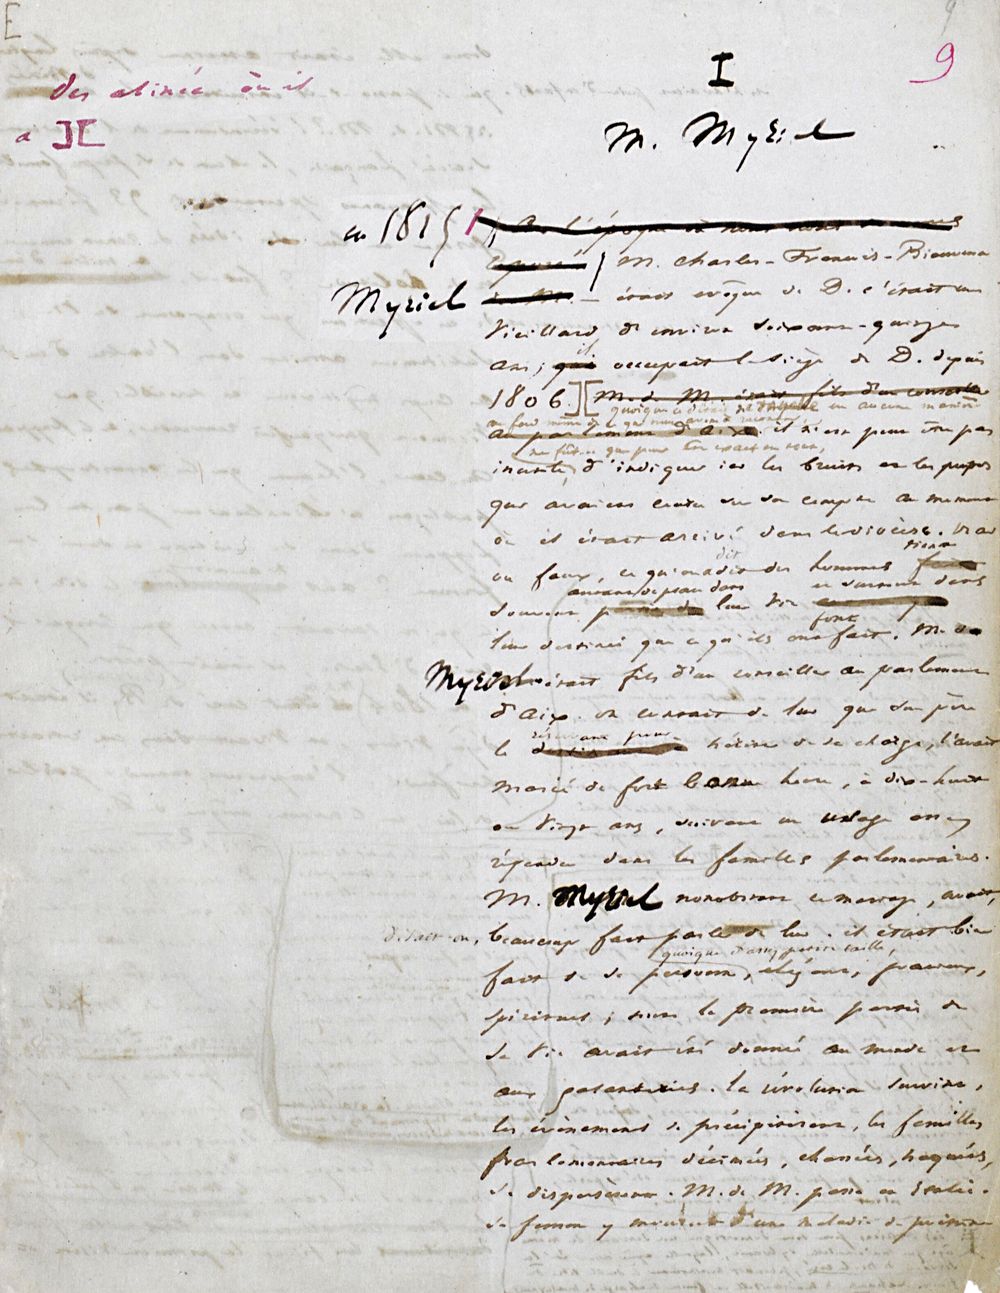 E
9
9
I
M. Myriel
des alinéa où il
a ][
en 1815, à l'époque
M. Charles-François-Bienvenu
Myriel était évêque de D. c'était un
vieillard d'environ soixante-quinze
ans; il occupait le siège de D. depuis
1806. ][ M. de M. était fils d'un conseiller
quoique ce détail ne touche en aucune manière
au fond même de ce que nous avons à raconter
au parlement d'Aix. il n'est peut-être pas
ne fût-ce que pour être exact en tout,
inutile d'indiquer ici les bruits et les propos
qui avaient couru sur son compte au moment
où il était arrivé dans le diocèse. Vrai
ou faux, ce qu'on dit des hommes tient
souvent autant de place dans leur vie et surtout dans
leur destinée que ce qu'ils font. M.
Myriel était fils d'un conseiller au parlement
d'Aix. on contait de lui que son père
le réservant pour hériter de sa charge, l'avait
marié de fort bonne heure, à dix-huit
ou vingt ans, suivant un usage assez
répandu dans les familles parlementaires.
M. Myriel nonobstant ce mariage, avait,
disait-on,
beaucoup fait parler de lui. il était bien
quoique d'assez petite taille,
fait de sa personne, élégant, gracieux,
spirituel; toute la première partie de
sa vie avait été donnée au monde et
aux galanteries. la révolution survint,
les évènements se précipitèrent, les familles
parlementaires décimées, chassées, traquées,
se dispersèrent. M. de M. passa en Italie.
sa femme y mourut d'une maladie de poitrine